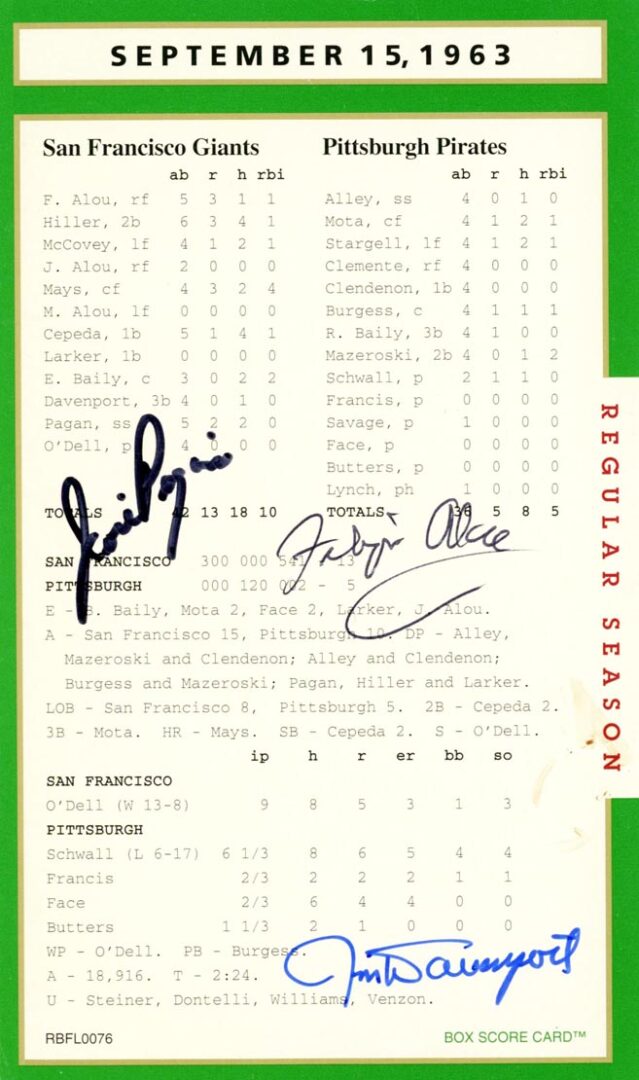 SEPTEMBER 15, 1963
San Francisco Giants
ab r h rbi
F. Alou, rf 5 3 1 1
Hiller, 2b 6 3 4 1
McCovey, lf 4 1 2 1
J. Alou, rf 2 0 0 0
Mays, cf 4 3 2 4
M. Alou, lf 0 0 0 0
Cepeda, 1b 5 1 4 1
Larker, 1b 0 0 0 0
E. Baily, c 3 0 2 2
Davenport, 3b 4 0 1 0
Pagan, ss 5 2 2 0
O'Dell, p 4 0 0 0
TOTALS 42 13 18 10
Pittsburgh Pirates
ab r h rbi
Alley, ss 4 0 1 0
Mota, cf 4 1 2 1
Stargell, lf 4 1 2 1
Clemente, rf 4 0 0 0
Clendenon, 1b 4 0 0 0
Burgess, c 4 1 1 1
R. Baily, 3b 4 1 0 0
Mazeroski, 2b 4 0 1 2
Schwall, p 2 1 1 0
Francis, p 0 0 0 0
Savage, p 1 0 0 0
Face, p 0 0 0 0
Butters, p 0 0 0 0
Lynch, ph 1 0 0 0
TOTALS 36 5 8 5
Jose Pagan
SAN FRANCISCO 300 000 541 - 13
PITTSBURGH 000 120 002 - 5
E - B. Baily, Mota 2, Face 2, Larker, J. Alou.
A - San Francisco 15, Pittsburgh 10. DP - Alley,
Mazeroski and Clendenon; Alley and Clendenon;
Burgess and Mazeroski; Pagan, Hiller and Larker.
LOB - San Francisco 8, Pittsburgh 5. 2B - Cepeda 2.
3B - Mota. HR - Mays. SB - Cepeda 2. S - O'Dell.
ip h r er bb so
SAN FRANCISCO
O'Dell (W 13-8) 9 8 5 3 1 3
PITTSBURGH
Schwall (L 6-17) 6 1/3 8 6 5 4 4
Francis 2/3 2 2 2 1 1
Face 2/3 6 4 4 0 0
Butters 1 1/3 2 1 0 0 0
WP - O'Dell. PB - Burgess.
A - 18,916. T - 2:24.
U - Steiner, Dontelli, Williams, Venzon.
Jim Davenport
RBFL0076
BOX SCORE CARD™
REGULAR SEASON